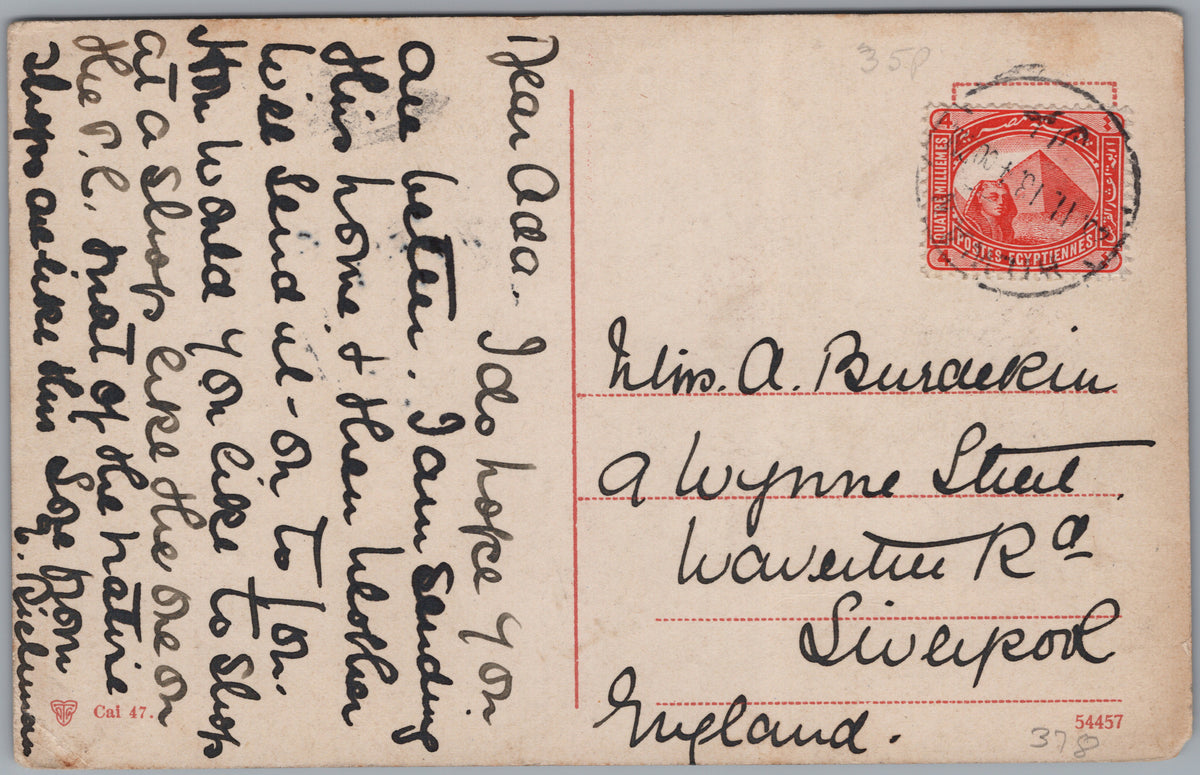 Dear Ada. I do hope you
are better. I am sending
this home & then Mother
will send it on to you.
How would you like to shop
at a shop like the one on
the P.C. most of the native
shops are like this Love from
R. Richman
35p
QUATRE MILLIEMES
POSTES EGYPTIENNES
4
4
Miss. A. Burdekin
9 Wynne Street
Wavertree Rd
Liverpool
England.
Cai 47.
54457
378